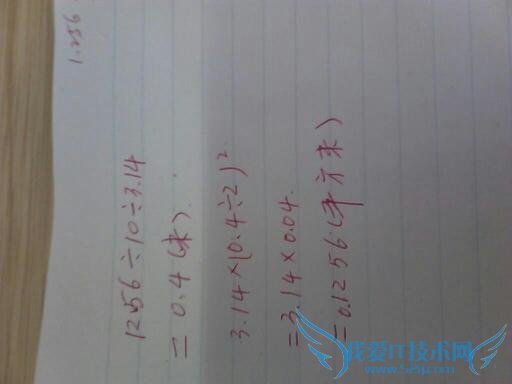 1.256
12.56÷10÷3.14
=0.4(米)
3.14×(0.4÷2)²
=3.14×0.04
=0.1256(平方米)
我爱IT技术网
www.52ij.com